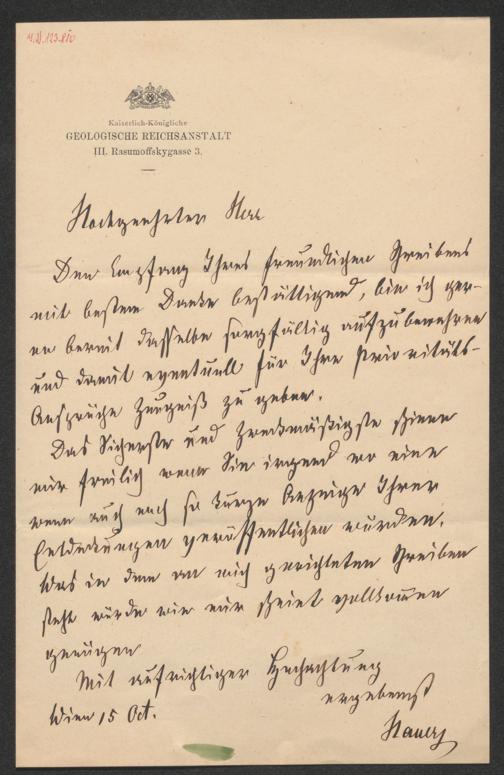 Kaiserlich-Königliche
GEOLOGISCHE REICHSANSTALT
III. Rasumoffskygasse 3.
Hochgeehrter Herr
Den Empfang Ihres freundlichen Schreibens
mit bestem Danke bestättigend, bin ich ger-
ne bereit dasselbe sorgfältig aufzubewahren
und damit eventuell für Ihre Prioritäts-
Ansprüche Zeugniß zu geben.
Das Sicherste und Zweckmäßigste schiene
mir freilich wenn Sie irgend wo eine
wenn auch noch so kurze Anzeige Ihrer
Entdeckungen veröffentlichen würden.
Was in dem an mich gerichteten Schreiben
steht würde wie mir scheint vollkommen
genügen
Mit aufrichtiger Hochachtung
ergebenst
Wien 15 Oct.
Hauer